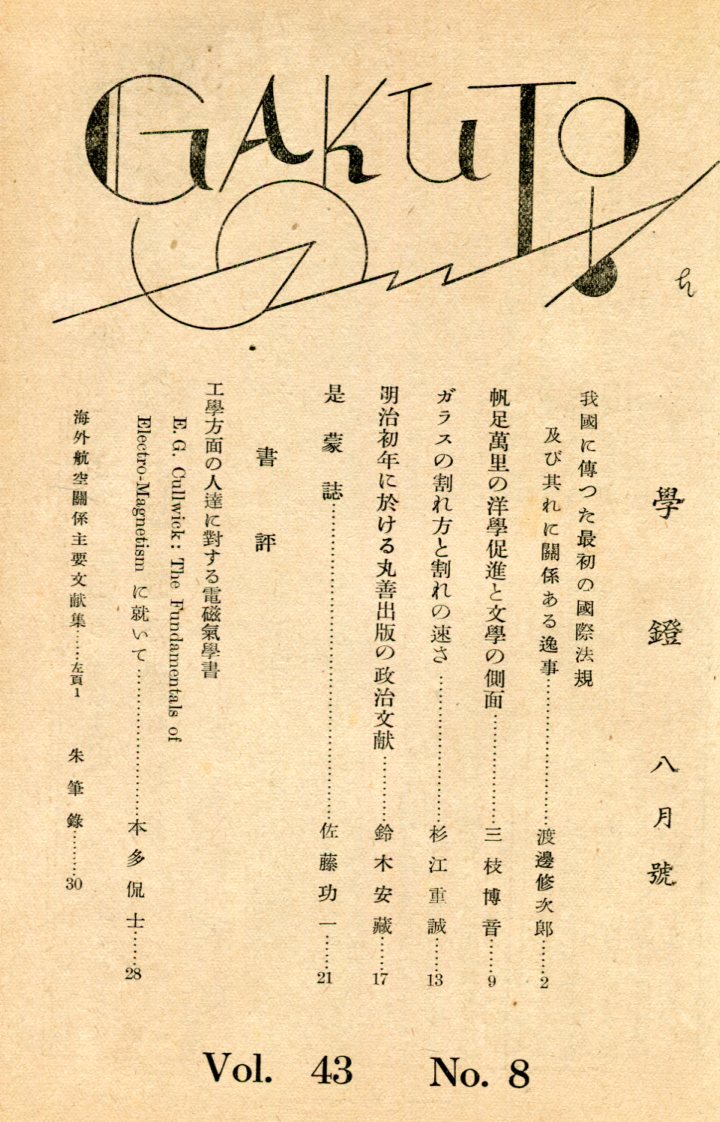 GAKUTO
學鐙 八月號
我國に傳つた最初の國際法規
及び其れに關係ある逸事……………渡邊修次郎……2
帆足萬里の洋學促進と文學の側面…………三枝博音……9
ガラスの割れ方と割れの速さ……………杉江重誠……13
明治初年に於ける丸善出版の政治文献………鈴木安藏……17
是蒙誌………………………………佐藤功一……21
書評
工學方面の人達に對する電磁氣學書
E. G. Cullwick: The Fundamentals of
Electro-Magnetism に就いて………………本多侃士……28
海外航空關係主要文献集……左頁1 朱筆錄………30
Vol. 43 No. 8